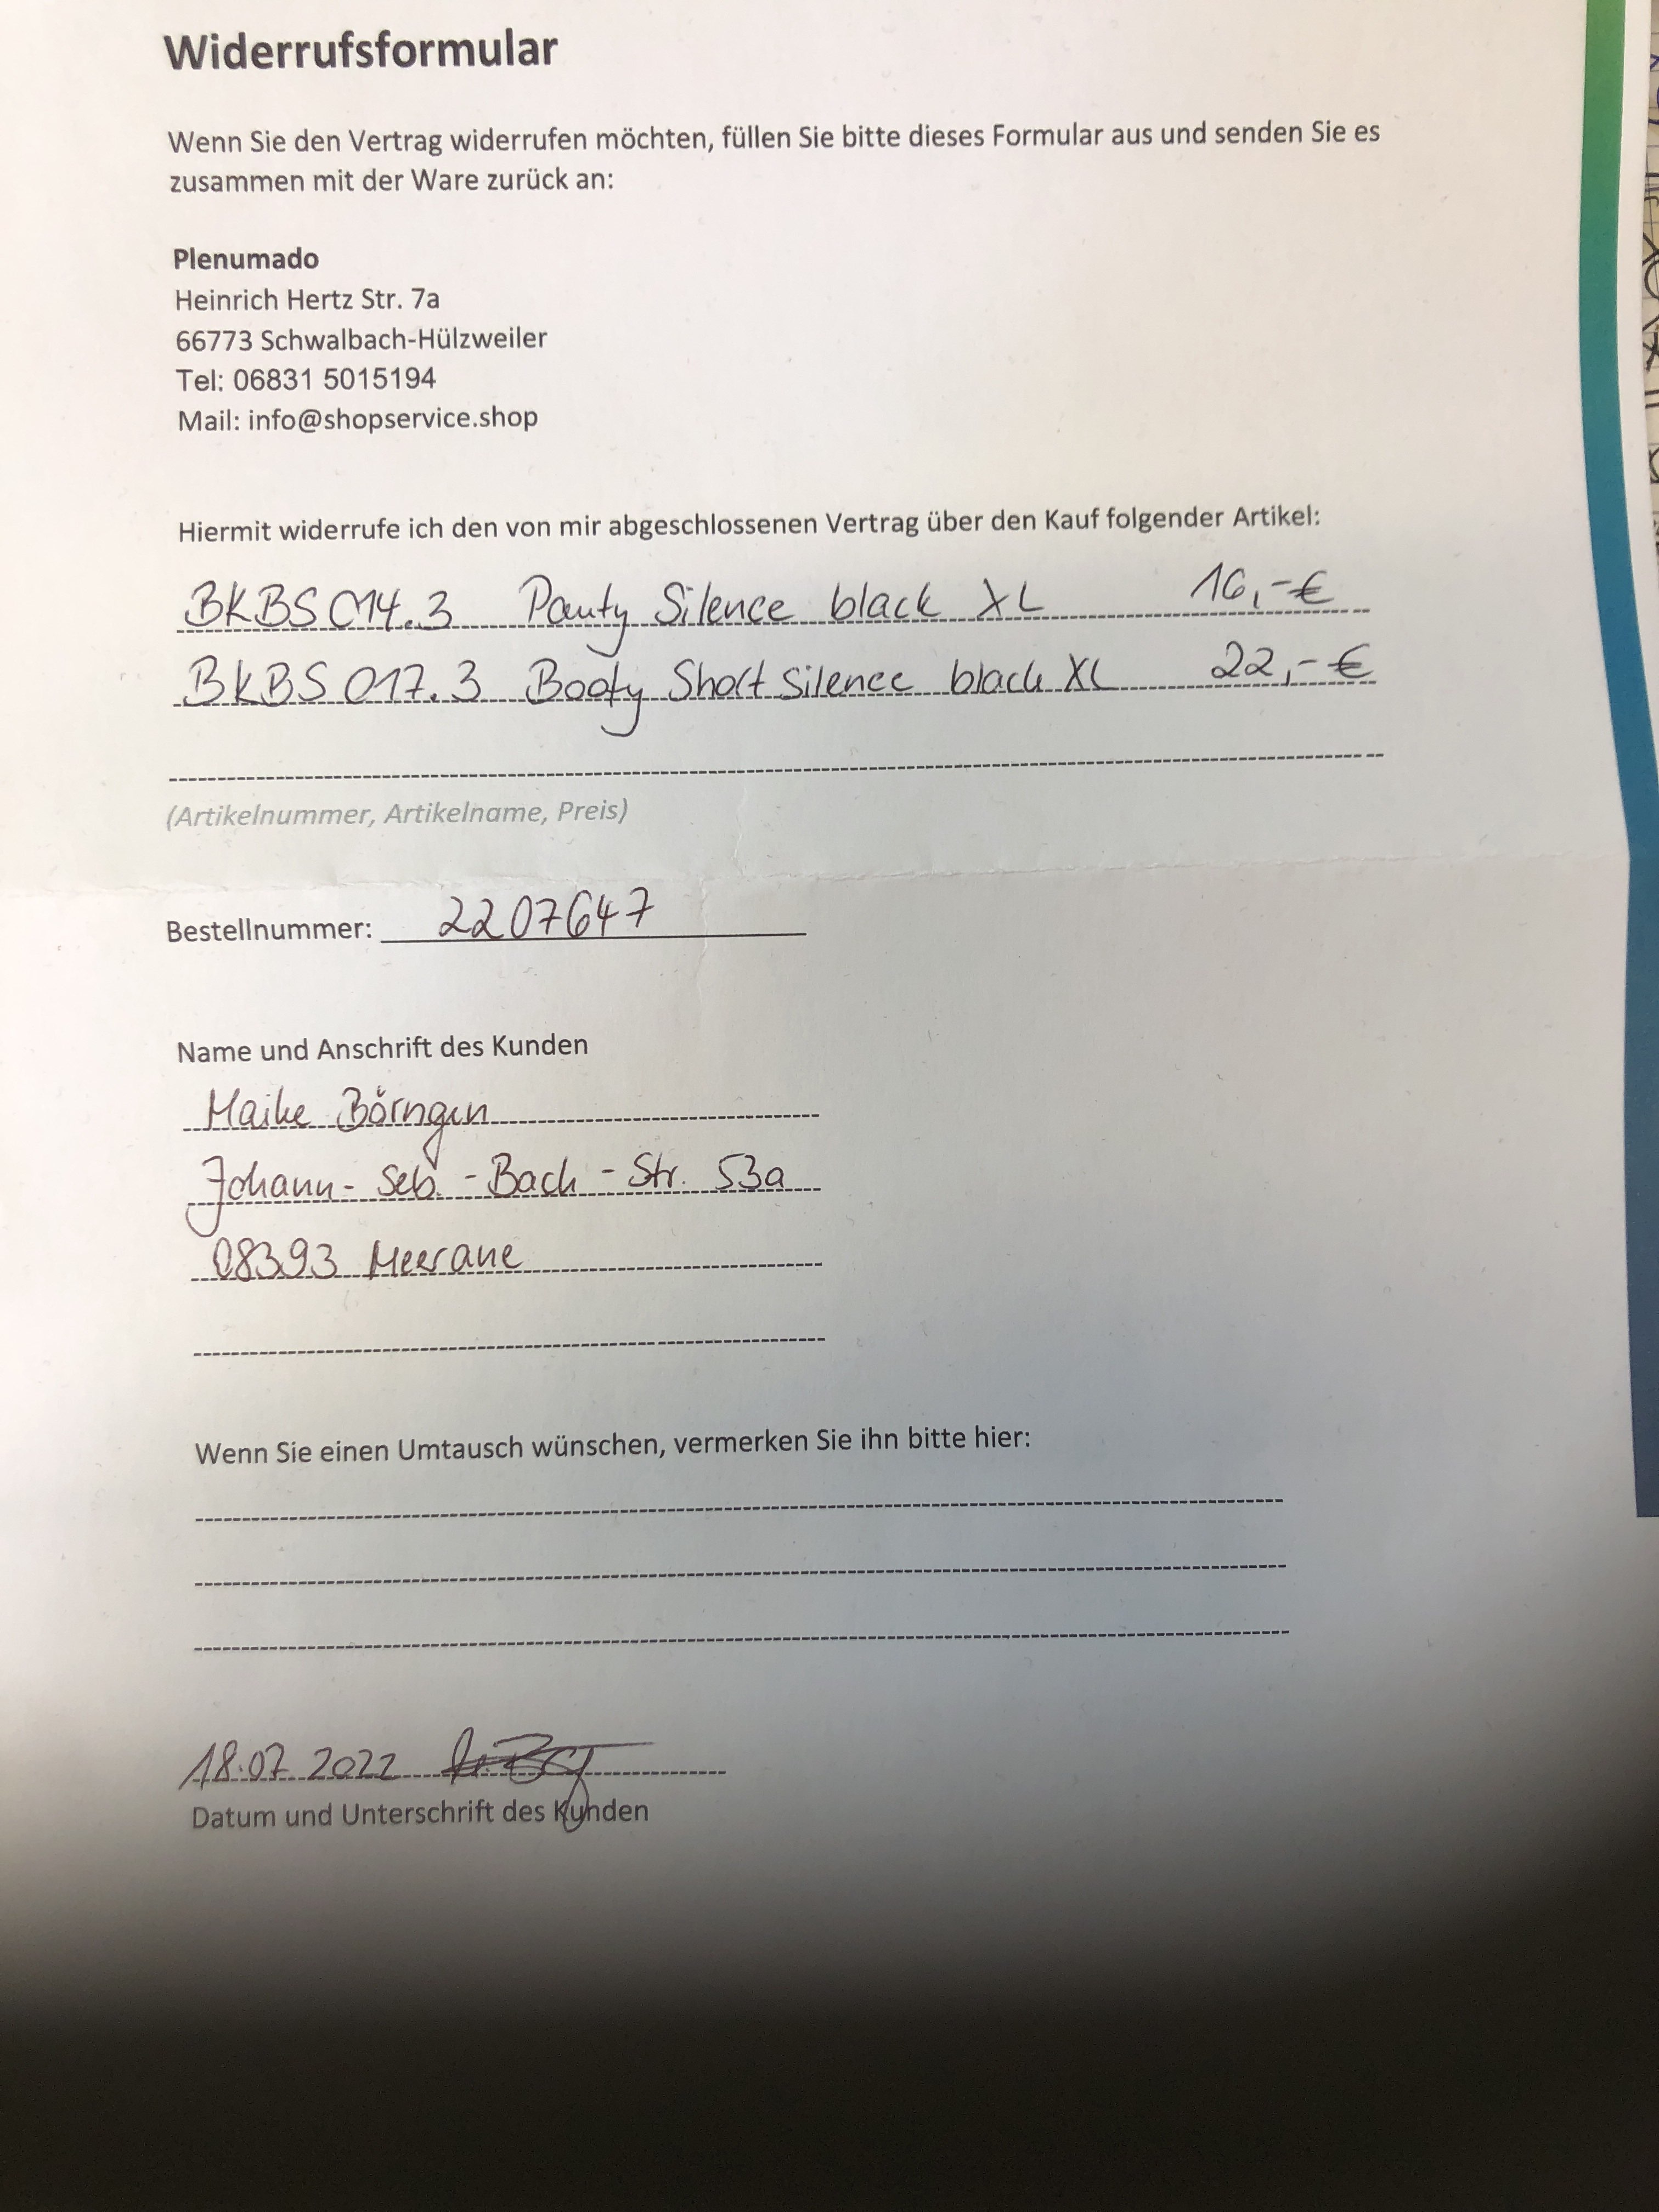 Widerrufsformular
Wenn Sie den Vertrag widerrufen möchten, füllen Sie bitte dieses Formular aus und senden Sie es
zusammen mit der Ware zurück an:
Plenumado
Heinrich Hertz Str. 7a
66773 Schwalbach-Hülzweiler
Tel: 06831 5015194
Mail: info@shopservice.shop
Hiermit widerrufe ich den von mir abgeschlossenen Vertrag über den Kauf folgender Artikel:
BKBS014.3 Panty Silence black XL 16,-€
BKBS017.3 Booty Short Silence black XL 22,-€
(Artikelnummer, Artikelname, Preis)
Bestellnummer: 2207647
Name und Anschrift des Kunden
Maike Börngen
Johann-Seb.-Bach-Str. 53a
08393 Meerane
Wenn Sie einen Umtausch wünschen, vermerken Sie ihn bitte hier:
18.07.2022
Datum und Unterschrift des Kunden